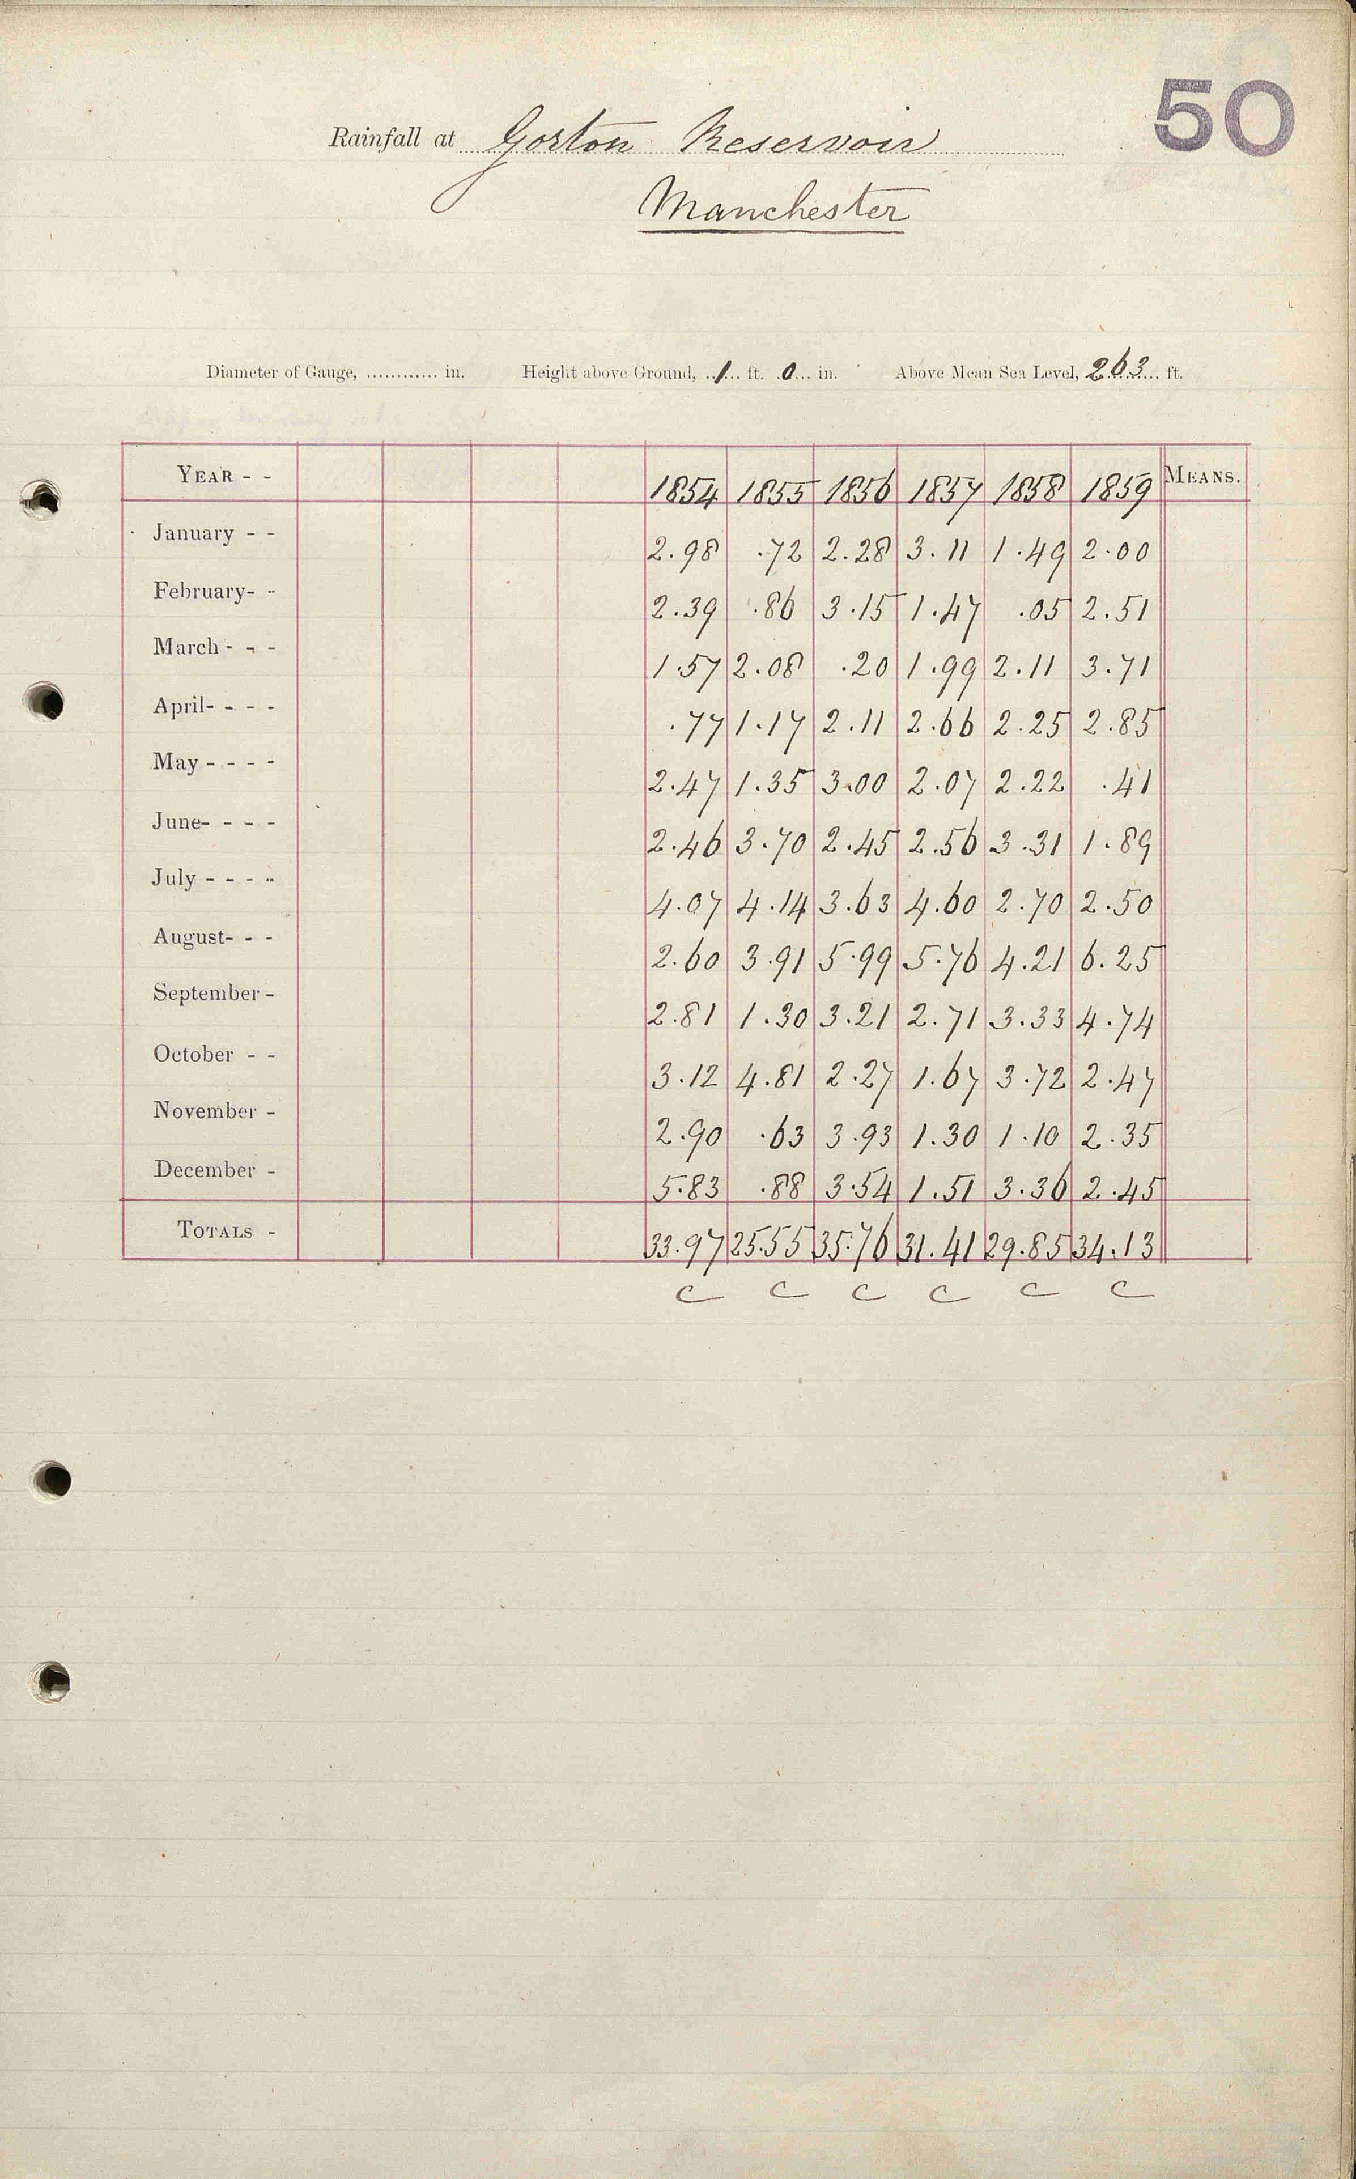 50
Rainfall at Gorton Reservoir
Manchester
Diameter of Gauge, ............ in. Height above Ground, 1 ft. 0 in. Above Mean Sea Level, 263 ft.
YEAR - - 1854 1855 1856 1857 1858 1859 MEANS.
January - - 2.98 .72 2.28 3.11 1.49 2.00
February- - 2.39 .86 3.15 1.47 .05 2.51
March - - - 1.57 2.08 .20 1.99 2.11 3.71
April- - - - .77 1.17 2.11 2.66 2.25 2.85
May - - - - 2.47 1.35 3.00 2.07 2.22 .41
June- - - - 2.46 3.70 2.45 2.56 3.31 1.89
July - - - - 4.07 4.14 3.63 4.60 2.70 2.50
August- - - 2.60 3.91 5.99 5.76 4.21 6.25
September - 2.81 1.30 3.21 2.71 3.33 4.74
October - - 3.12 4.81 2.27 1.67 3.72 2.47
November - 2.90 .63 3.93 1.30 1.10 2.35
December - 5.83 .88 3.54 1.51 3.36 2.45
TOTALS - 33.97 25.55 35.76 31.41 29.85 34.13
C C C C C C